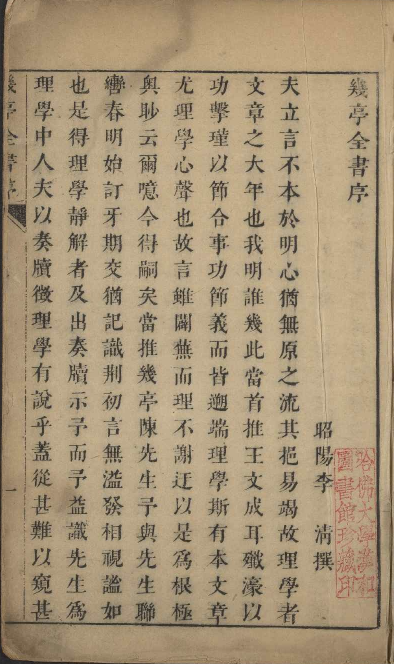 幾亭全書序
昭陽李　清撰
夫立言不本於明心猶無原之流其挹易竭故理學者
文章之大年也我明誰幾此當首推王文成耳殲濠以
功擊瑾以節合事功節義而皆遡端理學斯有本文章
尤理學心聲也故言雖闢蕪而理不謝迂以是為根極
與眇云爾噫今得嗣矣當推幾亭陳先生予與先生聯
鑾春明始訂牙期交猶記識荆初言無溢發相視謐如
也是得理學靜解者及出奏牘示予而予益識先生為
理學中人夫以奏牘徵理學有說乎蓋從甚難以窺甚
幾亭全書序
一
哈佛大學漢和
圖書館珍藏印